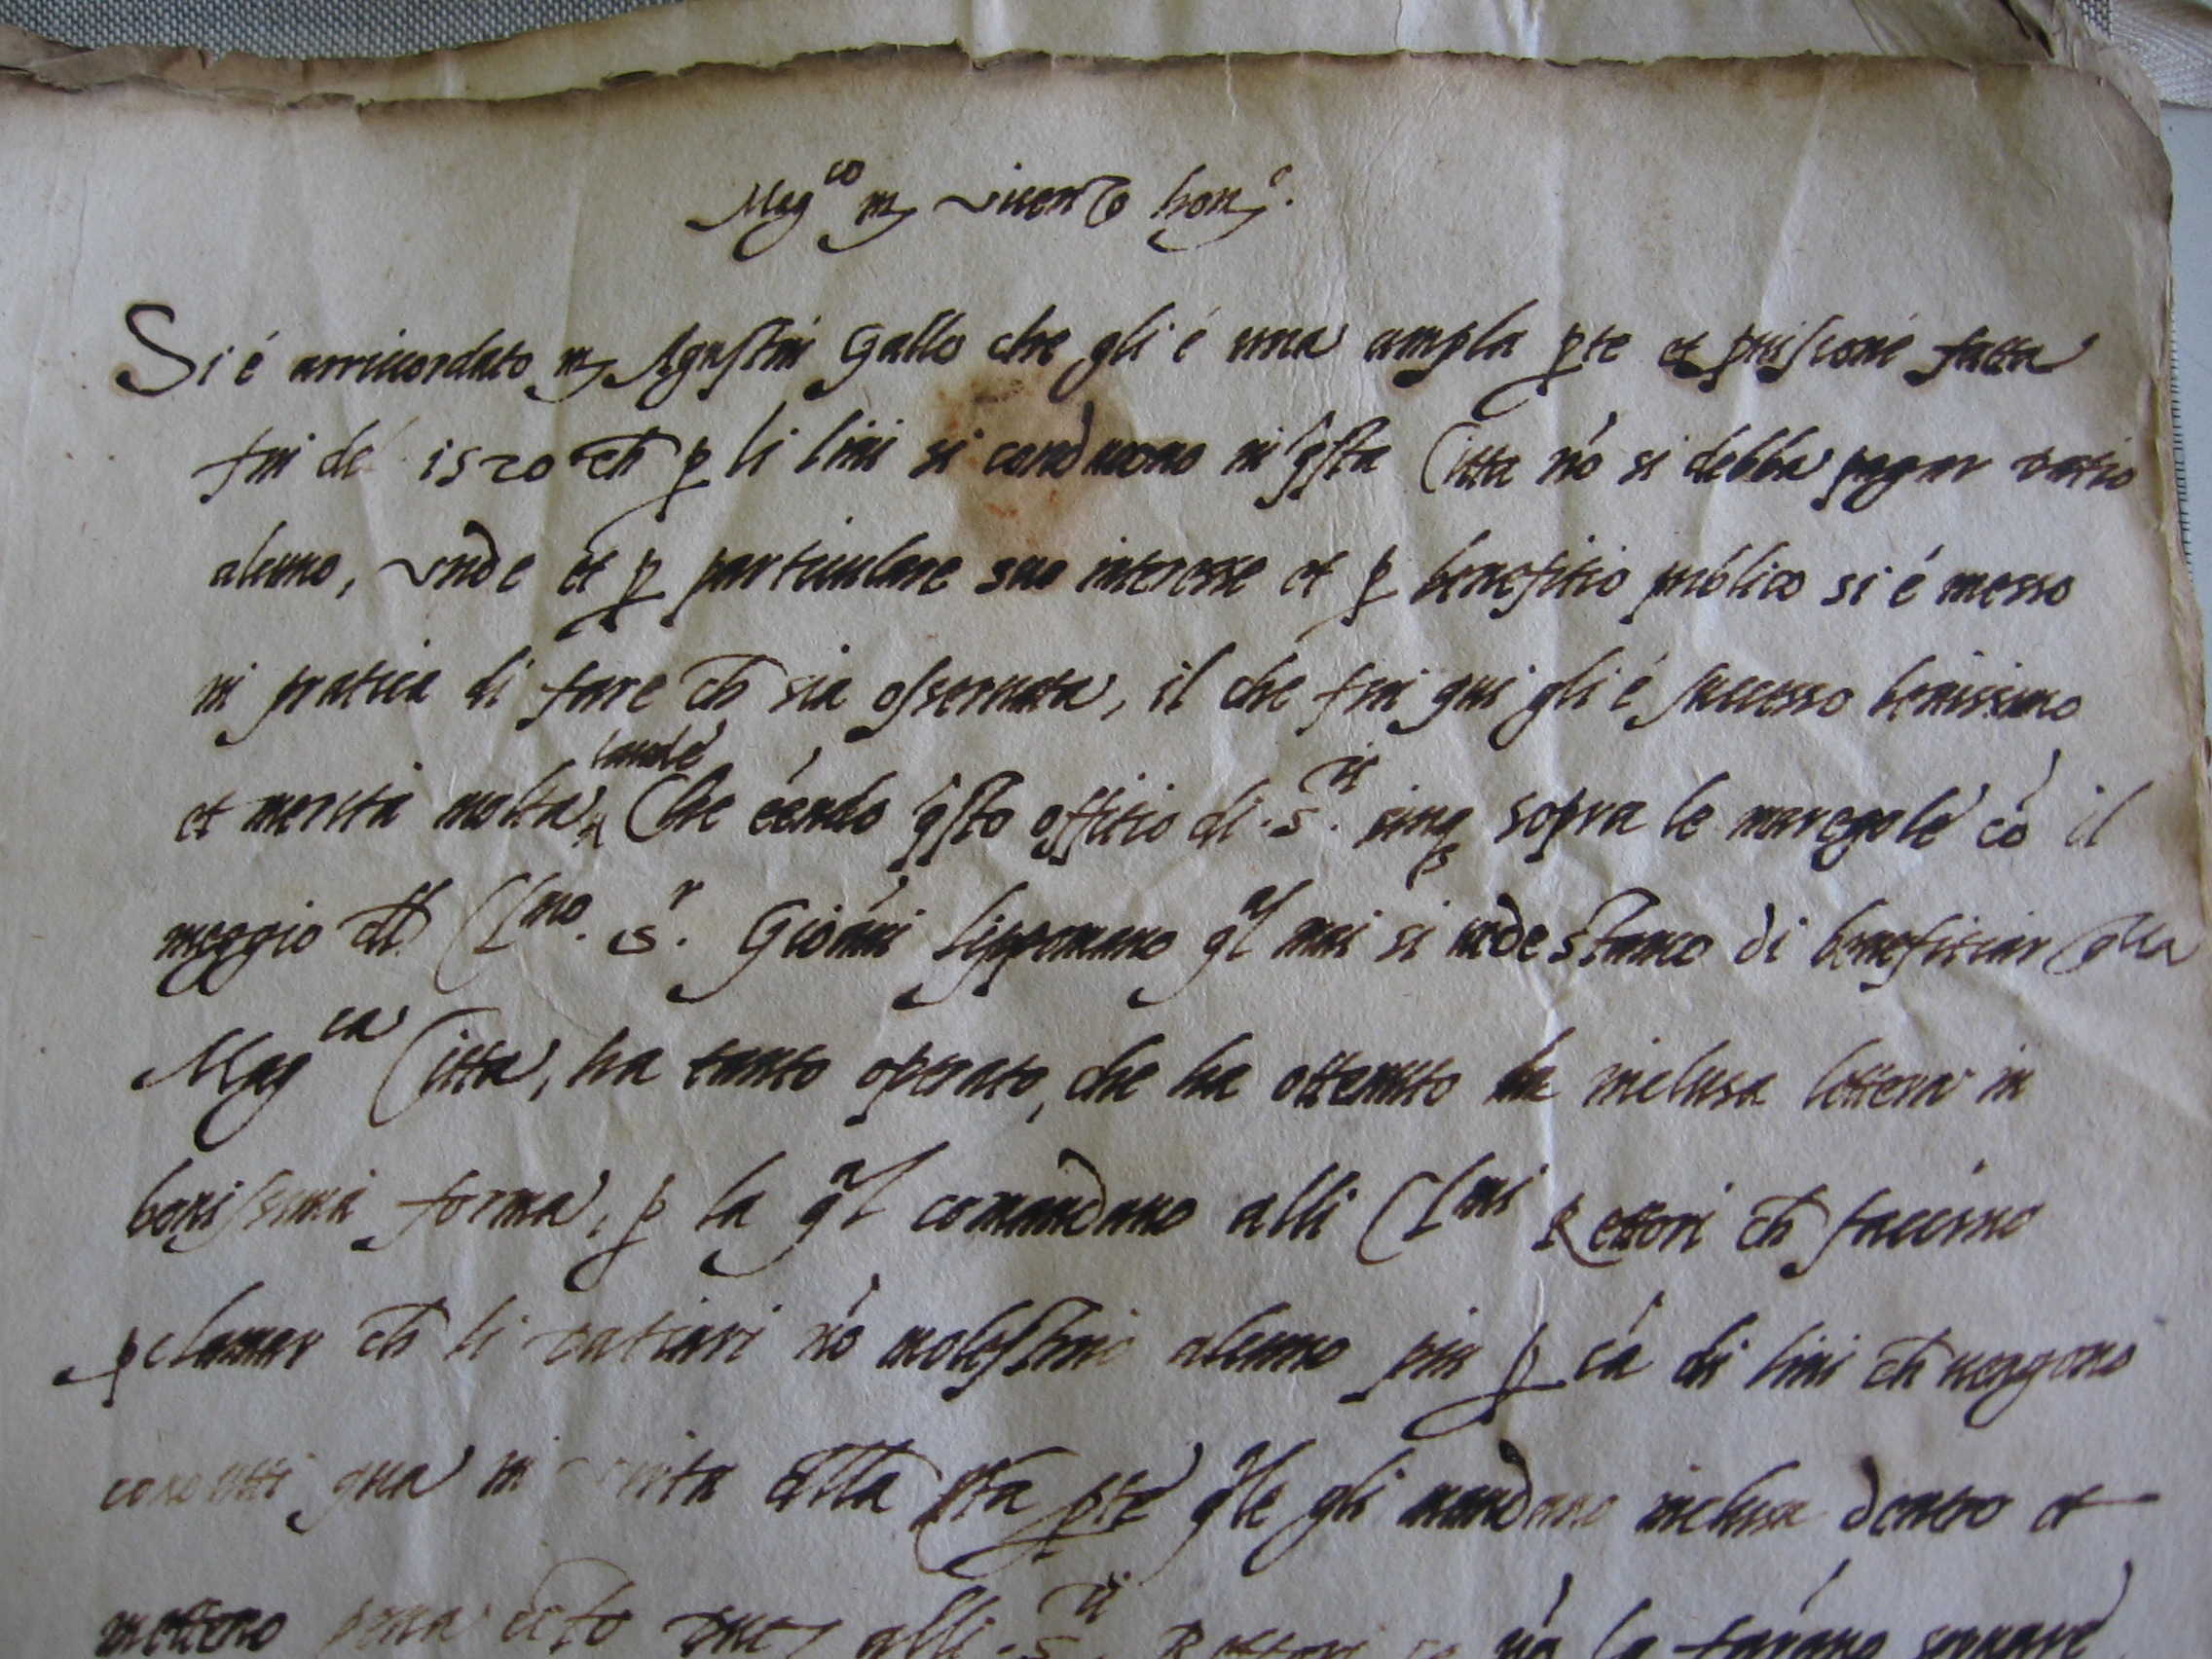 Mag.co m. vicenzo hon.
Si é arriccordato m. Agustin Gallo che gli é una ampla pte et pvisione fatta
fin del 1520 ch p li lini si conducono in qsta Citta nó si debba pagar datio
alcuno, unde et p particulare suo interesse et p benefitio publico si é messo
in pratica di fare ch sia osservata, il che fin qui gli é successo benissimo
et merita molta laude Che eéndo qsto offitio di .S.ri cinq sopra le mareғole có il
meggio dll Cl.mo S.r Gioáni Lippomano ql mai si vede stanco di benefitiar qlla
Mag.ca Citta, ha tanto operato, che ha ottenuto la inclusa lettera in
bonissima forma, p la ql comandano alli Cl.mi Rettori ch faccino
pclamar ch li datiari nó molestino alcuno piu p cá di lini ch vengono
condutti qua in virtu dlla dtta pte qle gli mandano inclusa dentro et
metteno pena alli .S.ri Rettori se nó la faráno servare